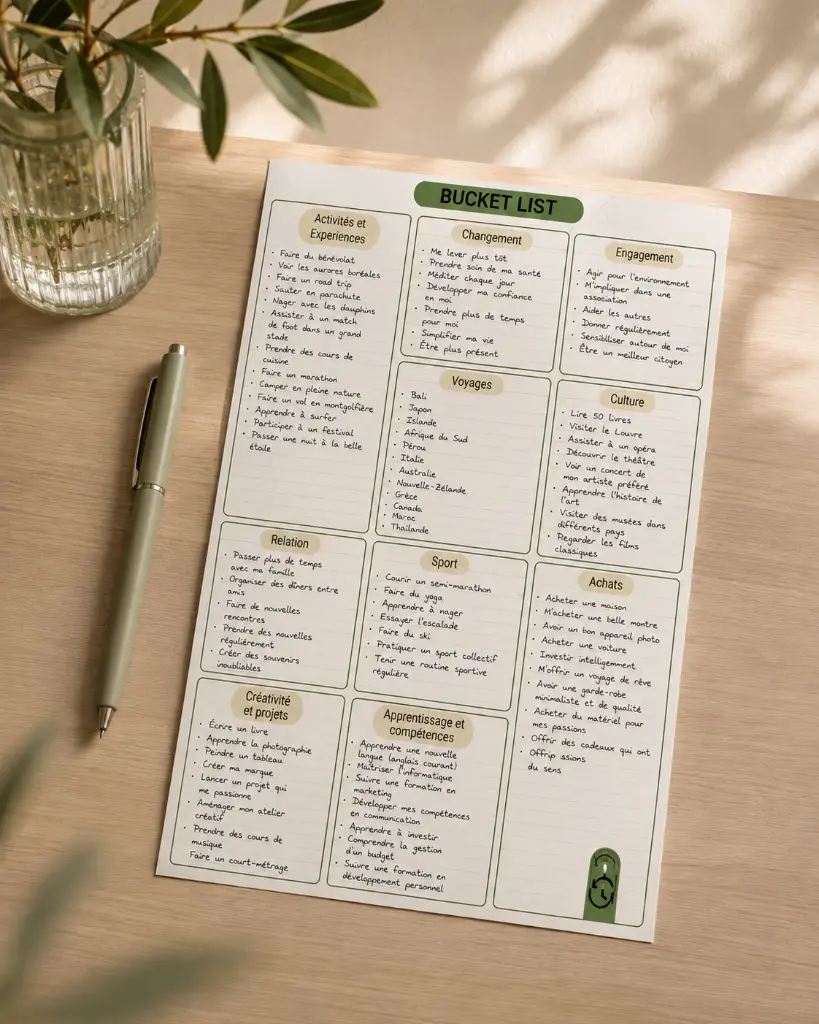 BUCKET LIST
Activités et
Experiences
• Faire du bénévolat
• Voir les aurores boréales
• Faire un road trip
• Sauter en parachute
• Nager avec les dauphins
• Assister à un match
de foot dans un grand
stade
• Prendre des cours de
cuisine
• Faire un marathon
• Camper en pleine nature
• Faire un vol en montgolfière
• Apprendre à surfer
• Participer à un festival
• Passer une nuit à la belle
étoile
Changement
• Me lever plus tôt
• Prendre soin de ma santé
• Méditer chaque jour
• Développer ma confiance
en moi
• Prendre plus de temps
pour moi
• Simplifier ma vie
• Être plus présent
Engagement
• Agir pour l'environnement
• M'impliquer dans une
association
• Aider les autres
• Donner régulièrement
• Sensibliliser autour de moi
• Être un meilleur citoyen
Voyages
• Bali
• Japon
• Islande
• Afrique du Sud
• Pérou
• Italie
• Australie
• Nouvelle-Zélande
• Grèce
• Canada
• Maroc
• Thaïlande
Culture
• Lire 50 livres
• Visiter le Louvre
• Assister à un opéra
• Découvrir le théâtre
• Voir un concert de
mon artiste préféré
• Apprendre l'histoire de
l'art
• Visiter des musées dans
différents pays
• Regarder les films
classiques
Relation
• Passer plus de temps
avec ma famille
• Organiser des dîners entre
amis
• Faire de nouvelles
rencontres
• Prendre des nouvelles
régulièrement
• Créer des souvenirs
inoubliables
Sport
• Courir un semi-marathon
• Faire du yoga
• Apprendre à nager
• Essayer l'escalade
• Faire du ski
• Pratiquer un sport collectif
• Tenir une routine sportive
régulière
Achats
• Acheter une maison
• M'acheter une belle montre
• Avoir un bon appareil photo
• Acheter une voiture
• Investir intelligemment
• M'offrir un voyage de rêve
• Avoir une garde-robe
minimaliste et de qualité
• Acheter du matériel pour
mes passions
• Offrir des cadeaux qui ont
• Offrip ssions
du sens
Créativité
et projets
• Écrire un livre
• Apprendre la photographie
• Peindre un tableau
• Créer ma marque
• Lancer un projet qui
me passionne
• Aménager mon atelier
créatif
• Prendre des cours de
musique
Faire un court-métrage
Apprentissage et
compétences
• Apprendre une nouvelle
langue (anglais courant)
• Maîtriser l'informatique
• Suivre une formation en
marketing
• Développer mes compétences
en communication
• Apprendre à investir
• Comprendre la gestion
d'un budget
• Suivre une formation en
développement personnel